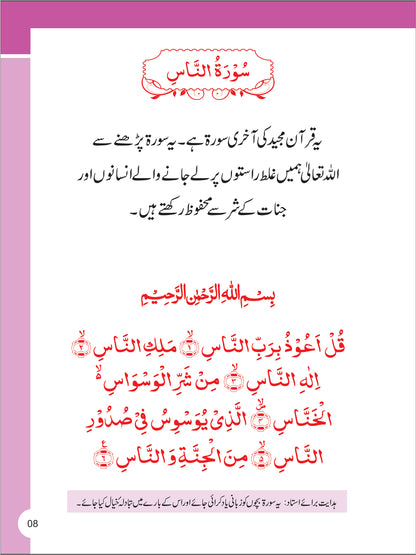 سُوْرَةُ النَّاسِ
یہ قرآن مجید کی آخری سورۃ ہے۔ یہ سورۃ پڑھنے سے
اللہ تعالیٰ ہمیں غلط راستوں پر لے جانے والے انسانوں اور
جنات کے شر سے محفوظ رکھتے ہیں۔
بِسْمِ اللهِ الرَّحْمٰنِ الرَّحِيْمِ
قُلْ اَعُوْذُ بِرَبِّ النَّاسِ ۙ﴿۱﴾ مَلِكِ النَّاسِ ۙ﴿۲﴾
اِلٰهِ النَّاسِ ۙ﴿۳﴾ مِنْ شَرِّ الْوَسْوَاسِ ۙ۬
الْخَنَّاسِ ۪ۙ﴿۴﴾ الَّذِیْ يُوَسْوِسُ فِیْ صُدُوْرِ
النَّاسِ ۙ﴿۵﴾ مِنَ الْجِنَّةِ وَ النَّاسِ ۠﴿۶﴾
ہدایت برائے استاد: یہ سورۃ بچوں کو زبانی یاد کرائی جائے اور اس کے بارے میں تبادلہ خیال کیا جائے۔
08